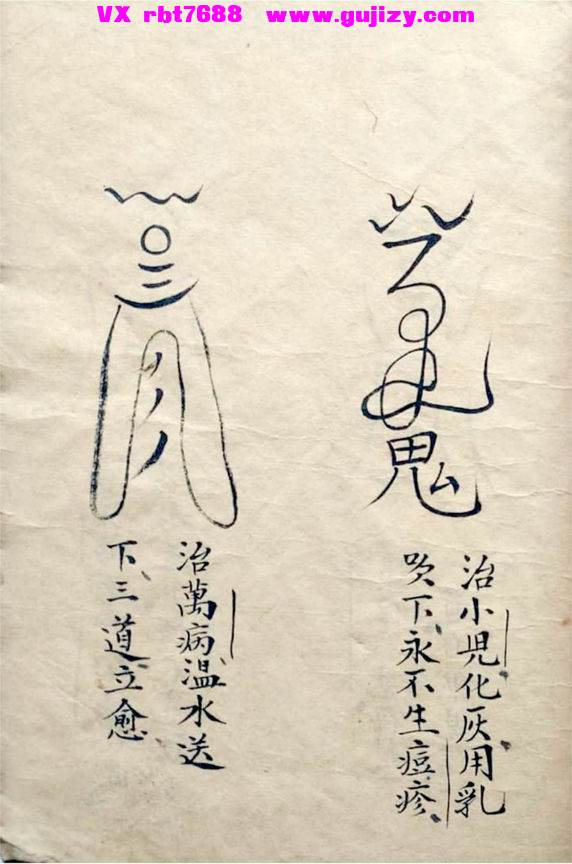 VX rbt7688 www.gujizy.com
鬼
治小児化灰用乳
吹下永不生痘疹
治萬病温水送
下三道立愈